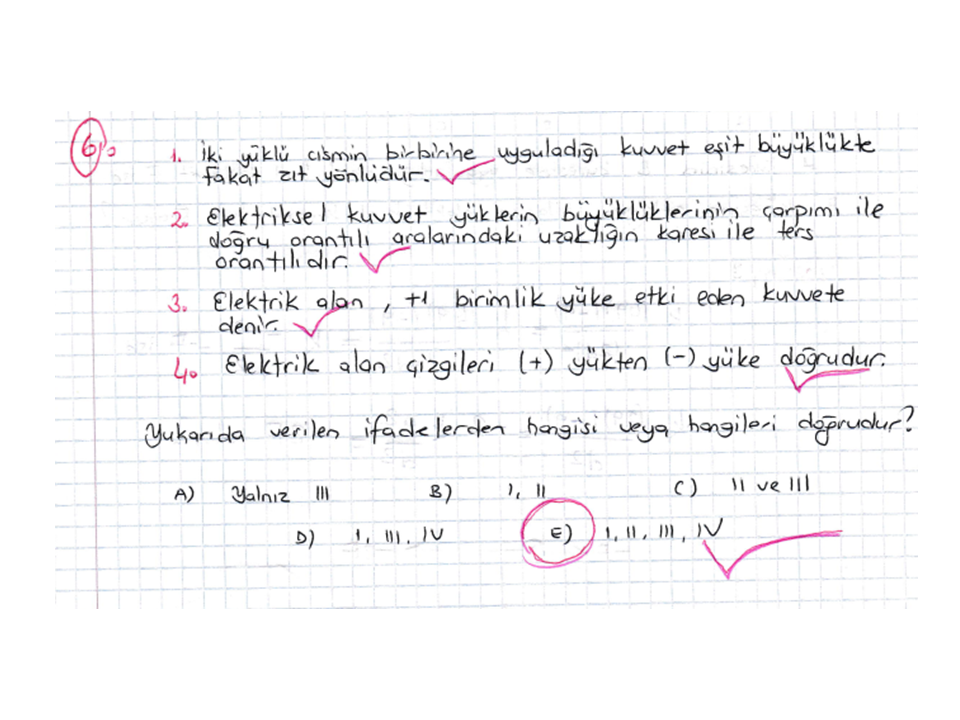 6)
1. İki yüklü cismin birbirine uyguladığı kuvvet eşit büyüklükte
fakat zıt yönlüdür.
2. Elektriksel kuvvet yüklerin büyüklüklerinin çarpımı ile
doğru orantılı aralarındaki uzaklığın karesi ile ters
orantılıdır.
3. Elektrik alan, +1 birimlik yüke etki eden kuvvete
denir.
4. Elektrik alan çizgileri (+) yükten (-) yüke doğrudur.
Yukarıda verilen ifadelerden hangisi veya hangileri doğrudur?
A) Yalnız III B) I, II C) II ve III
D) I, III, IV E) I, II, III, IV